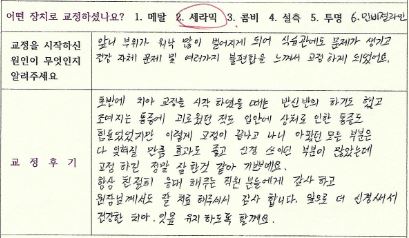 어떤 장치로 교정하셨나요? 1. 메탈 2. 세라믹 3. 콤비 4. 설측 5. 투명 6. 인비절라인
교정을 시작하신
원인이 무엇인지
알려주세요
앞니 부위가 워낙 많이 벌어지게 되어 식습관에도 문제가 생기고
건강 자체 문제 및 여러가지 불편함을 느껴서 교정 하게 되었어요.
교 정 후 기
초반에 치아 교정을 시작 하였을 때는 반신반의 하기도 했고
조여지는 통증에 괴로웠던 적도 입안에 상처로 인한 통증도
힘들었었지만 이렇게 교정이 끝나고 나니 아팠던 모든 부분은
다 잊혀질 만큼 효과도 좋고 신경 쓰이던 부분이 많았는데
교정 하길 정말 잘한것 같아 기쁘네요.
항상 친절히 응대 해주는 직원 분들에게 감사 하고
원장님께서도 잘 치료 해주셔서 감사 합니다. 앞으로 더 신경써서
건강한 치아. 잇몸 유지 하도록 할께요.